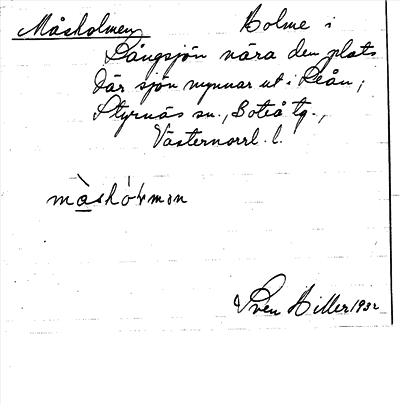 Måsholmen Holme i
Långsjön nära den plats
där sjön mynnar ut i Leån;
Styrnäs sn., Boteå tg.,
Västernorrl. l.
Sven Hiller 1932